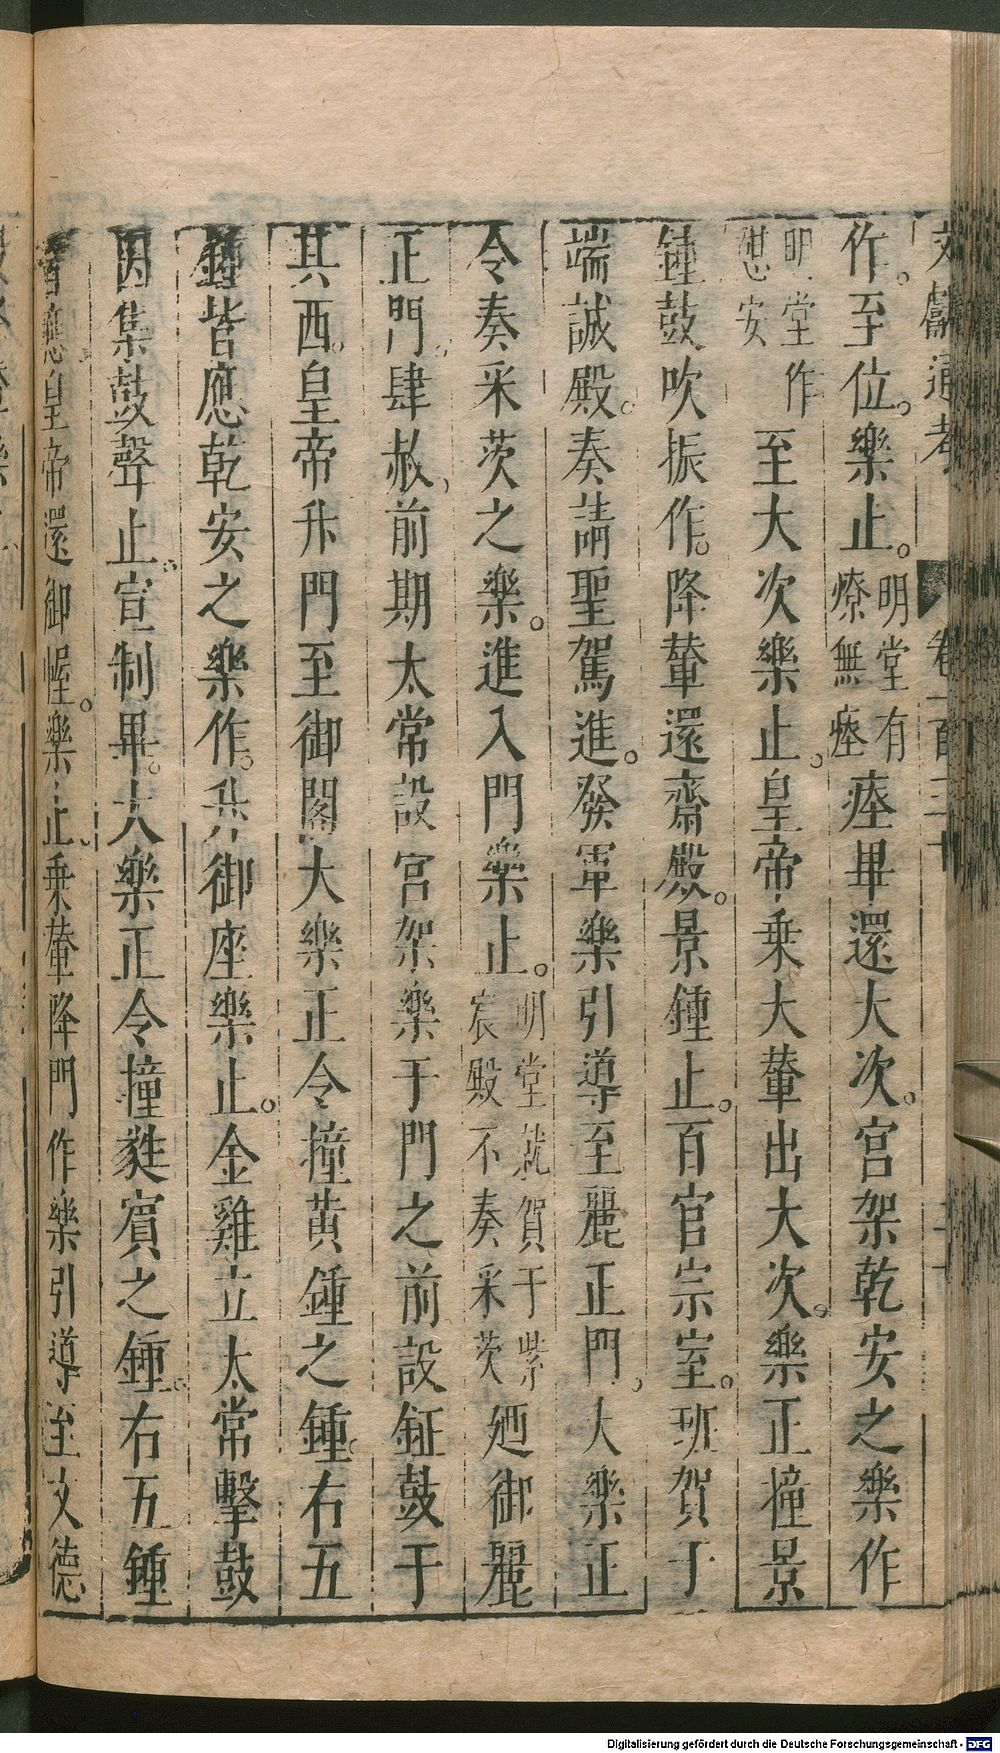 文獻通考 卷一百三十
作。至位。樂止。明堂有燎無瘞瘞畢還大次。宮架乾安之樂作
明堂作憩安至大次樂止。皇帝乗大輦出大次。樂正撞景
鍾鼓吹振作。降輦還齋殿。景鍾止。百官宗室。班賀于
端誠殿。奏請聖駕進。發軍樂引導至麗正門。大樂正
令奏采茨之樂。進入門樂止。明堂就賀于紫宸殿不奏采茨廼御麗
正門。肆赦。前期太常設宮架樂于門之前設鉦鼓于
其西。皇帝升門至御閣大樂正令撞黄鍾之鍾。右五
鍾皆應乾安之樂作。升御座樂止。金雞立太常擊鼓
囚集鼓聲止。宣制畢。大樂正令撞蕤賓之鍾。右五鍾
皆應皇帝還御幄。樂止。乗輦降門作樂引導至文德
Digitalisierung gefördert durch die Deutsche Forschungsgemeinschaft - DFG